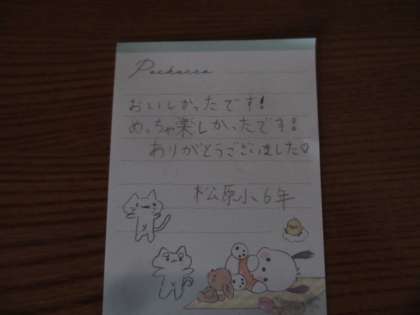 Pochacco
おいしかったです!
めっちゃ楽しかったです!
ありがとうございました♡
松原小6年